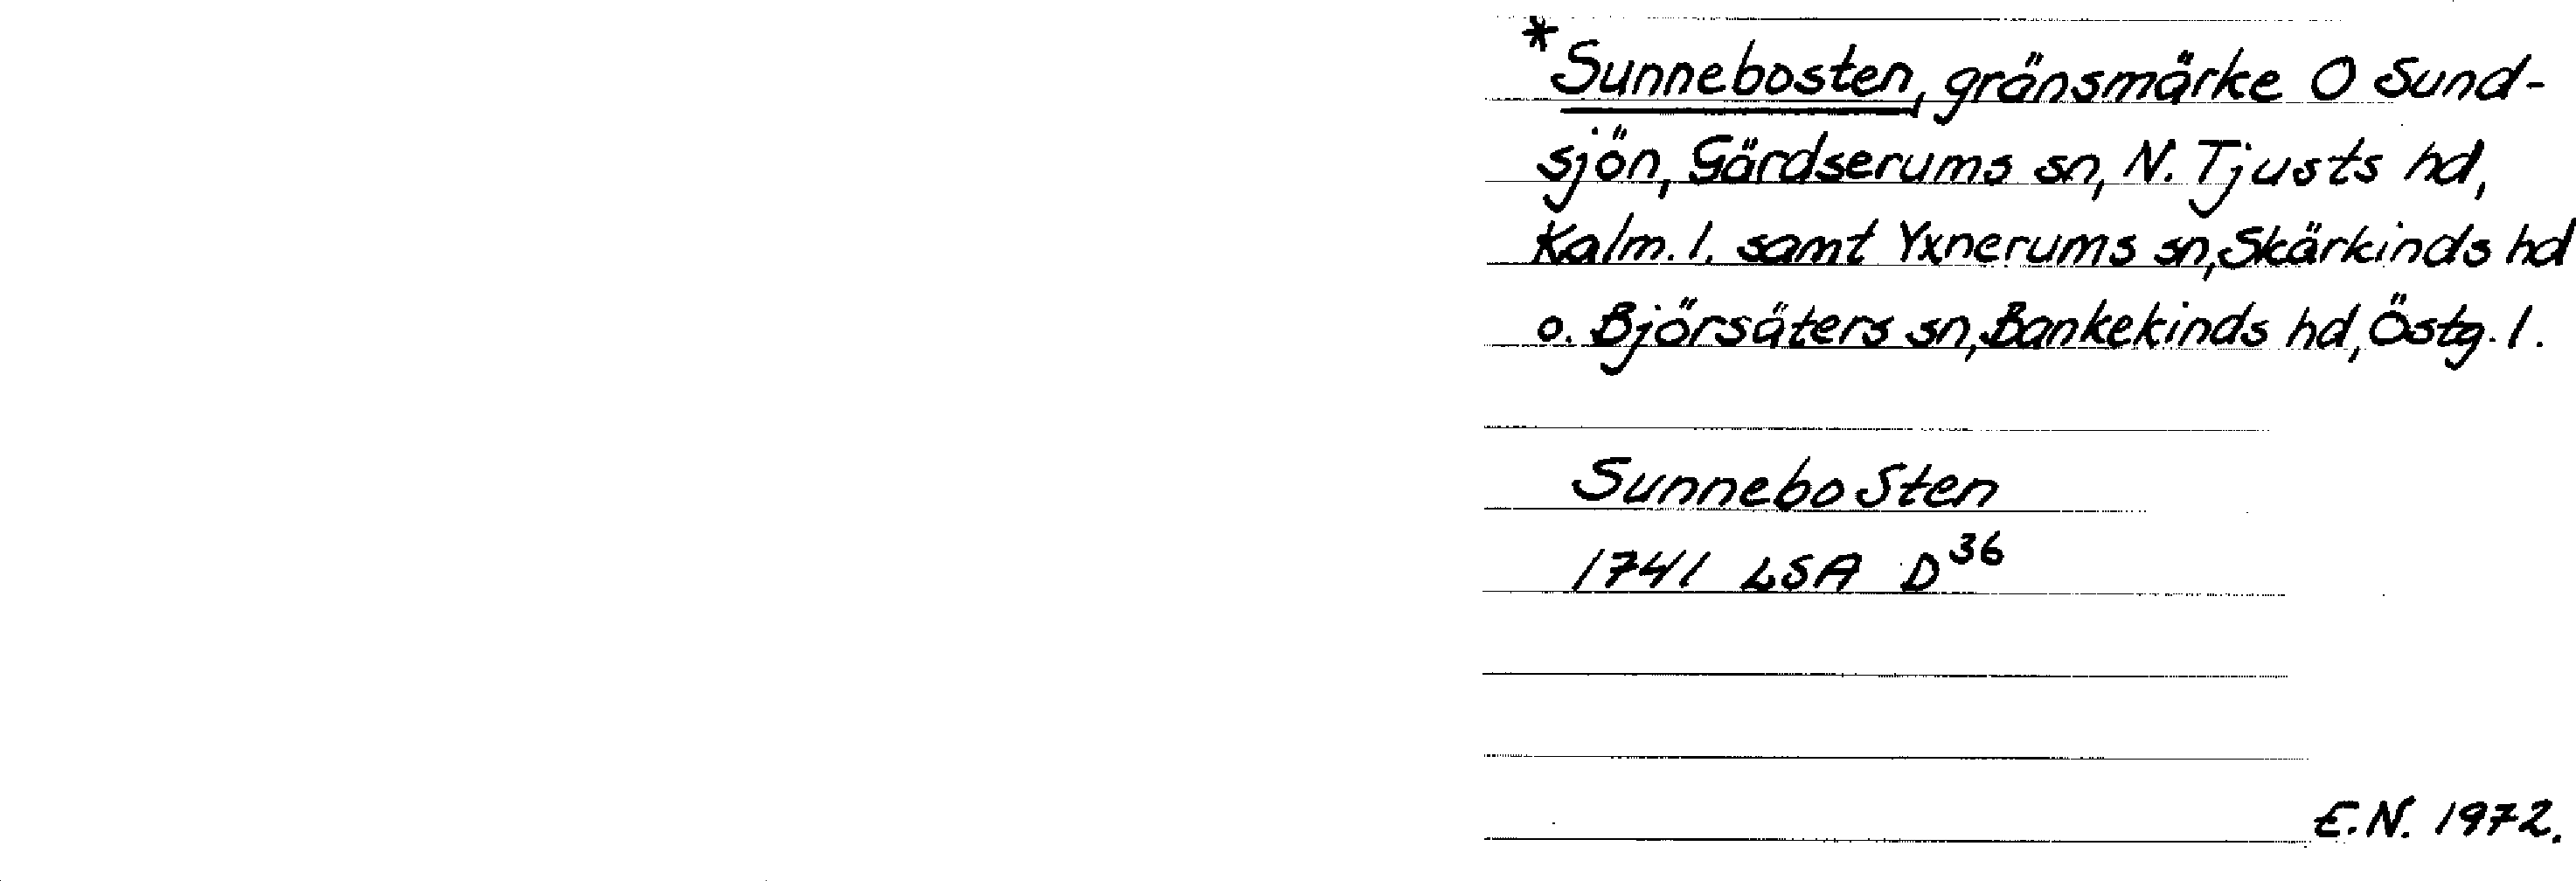 *Sunnebosten, gränsmärke O Sund-
sjön, Gärdserums sn, N. Tjusts hd,
Kalm. l. samt Yxnerums sn, Skärkinds hd
o. Björsäters sn, Bankekinds hd, Östg. l.
Sunnebo Sten
1741 LSA D36
E.N. 1972.